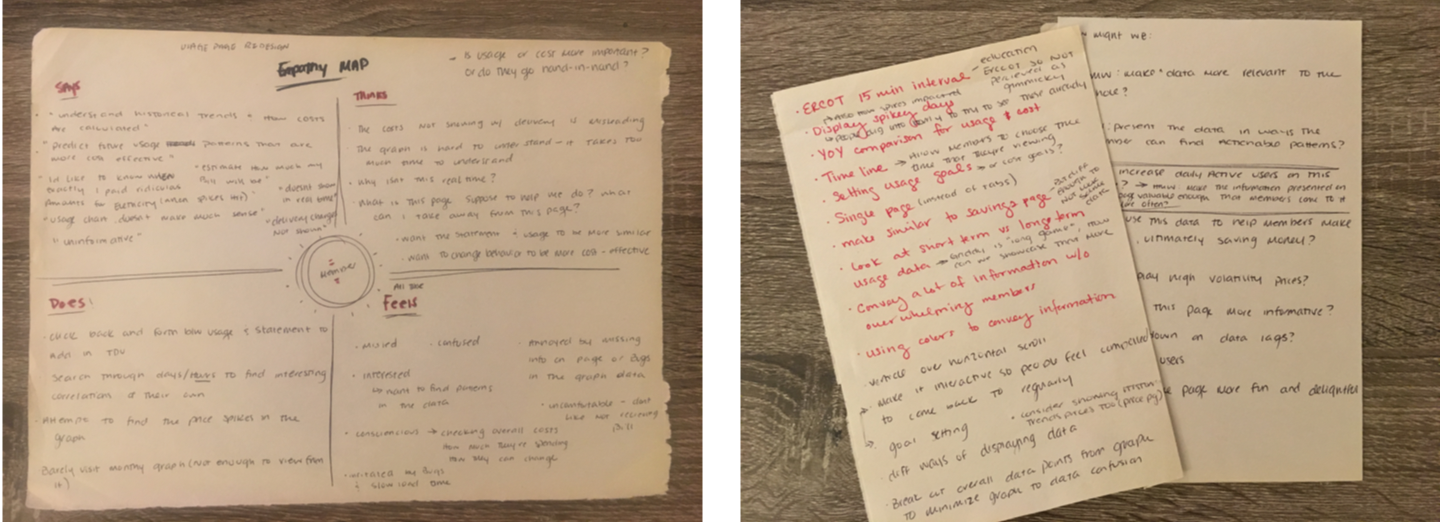 USAGE PAGE REDESIGN
Empathy MAP
- IS usage or cost more important?
Or do they go hand-in-hand?
SAYS
"understand historical trends & how costs
are calculated"
"predict future usage patterns that are
more cost effective"
"estimate how much my
bill will be"
"Id like to know when
exactly I paid ridiculous
amounts for electricity (when spikes hit)"
"doesnt show
in real time"
"usage chart doesn't make much sense"
"delivery charges
Not shown"
"uninformative"
THINKS
· The costs not showing w/ delivery is misleading
The graph is hard to understand - it takes too
much time to understand
· Why isnt this real time?
· What is this page suppose to help me do? What
can I take away from this page?
· want the statement & usage to be more similar
· want to change behavior to be more cost-effective
Member
DOES:
· click back and forth b/w usage & statement to
add in TDU
Search through days/hours to find interesting
correlation of their own
· Attempt to find the price spikes in the
graph
Barely visit monthly graph (Not enough to view from
it)
Feels
· misled
· confused
· interested
↳ want to find patterns
in the data
· conscientious → checking overall costs
how much they're spending
how they can change
· irritated by bugs
& slow load time
· Annoyed by missing
info on page or bugs
in the graph data
· uncomfortable - dont
like not receiving
bill
· ERCOT 15 min interval
- education
ERCOT so NOT
perceived as
gimmicky
· Display spikey days
· YOY comparison for usage & cost
· Time line → Allow members to choose the
time that they're viewing
· Setting usage goals - or cost goals?
· Single page (instead of tabs)
· make similar to savings page
- different
enough to
not seem
· Look at short term vs long term
usage data → Griddy is "long game", how
can we showcase that more
· Convey a lot of information w/o
overwhelming members
· using colors to convey information
· vertical over horizontal scroll
· Make it interactive so people feel compelled
to come back to regularly
· goal setting
· consider showing
trends prices too
· diff ways of displaying data
· Break out overall data points from graph
to minimize graph to data confusion
might we:
HMW: make data more relevant to the
: present the data in ways the
can find actionable patterns?
increase daily Active users on this
? → HMW make the information presented on
page valuable enough that members come to it
more often?
use this data to help members make
, ultimately saving money?
play high volatility prices?
this page more informative?
down on data lags?
users
page more fun and delightful